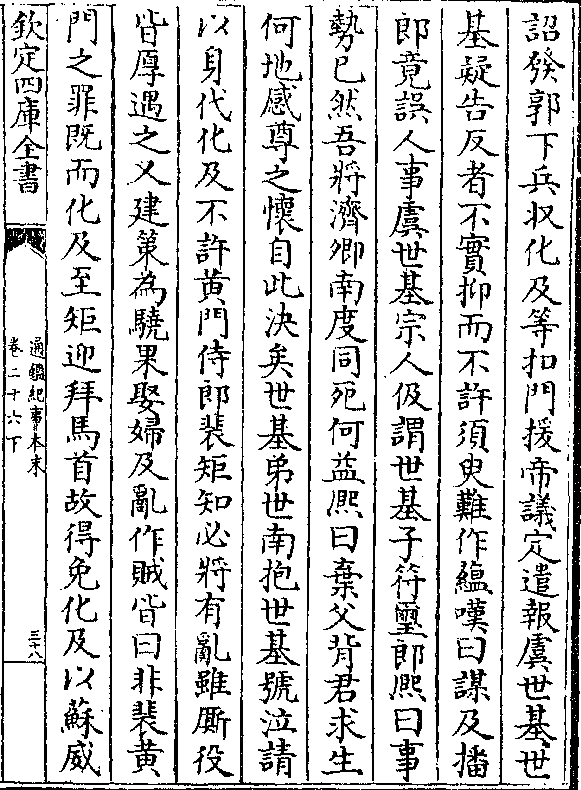 詔發郭下兵収化及等扣門援帝議定遣報虞世基世
基疑告反者不實抑而不許須臾難作蘊嘆曰謀及播
郎竟誤人事虞世基宗人伋謂世基子符璽郎熈曰事
勢已然吾將濟卿南度同死何益熈曰棄父背君求生
何地感尊之懷自此決矣世基弟世南抱世基號泣請
以身代化及不許黄門侍郎裴矩知必將有亂雖厮役
皆厚遇之又建策為驍果娶婦及亂作賊皆曰非裴黄
門之罪既而化及至矩迎拜馬首故得免化及以蘇威
欽定四庫全書
通鑑紀事本末
卷二十六下
三十八